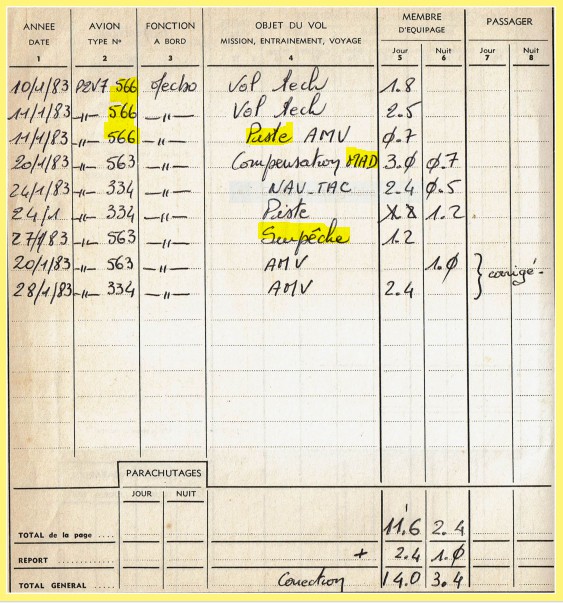 ANNEE AVION FONCTION OBJET DU VOL MEMBRE D'EQUIPAGE PASSAGER
DATE TYPE N° A BORD MISSION, ENTRAINEMENT, VOYAGE Jour Nuit Jour Nuit
1 2 3 4 5 6 7 8
10/1/83 P2V7 566 Mecbo Vol tech 1.8
11/1/83 -"- 566 -"- Vol tech 2.5
11/1/83 -"- 566 -"- Piste AMV Ø.7
20/1/83 -"- 563 -"- Compensation MAD 3.Ø Ø.7
24/1/83 -"- 334 -"- NAV_TAC 2.4 Ø.5
24/1 -"- 334 -"- Piste 1.2
27/1/83 -"- 563 -"- Surpêche 1.2
20/1/83 -"- 563 -"- AMV 1.Ø } corrigé.
28/1/83 -"- 334 -"- AMV 2.4
PARACHUTAGES
JOUR NUIT
TOTAL de la page .... 11.6 2.4
REPORT .... + 2.4 1.Ø
TOTAL GENERAL .... Correction 14.0 3.4